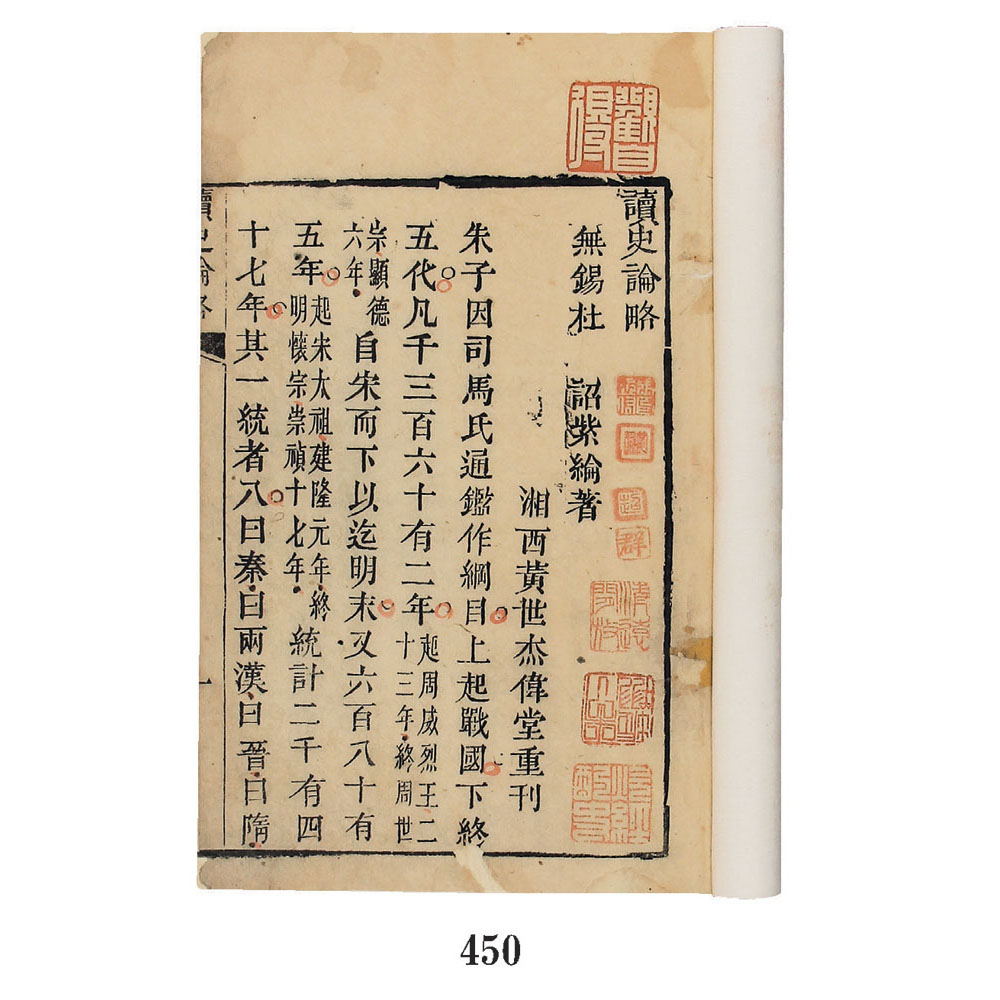 讀史論略
無錫杜 詔紫綸著
湘西黃世杰偉堂重刊
朱子因司馬氏通鑑作綱目上起戰國下終
五代凡千三百六十有二年起周威烈王二十三年終周世
宗顯德六年自宋而下以迄明末又六百八十有
五年起宋太祖建隆元年終明懷宗崇禎十七年統計二千有四
十七年其一統者八曰秦曰兩漢曰晉曰隋
讀史論略
一
450